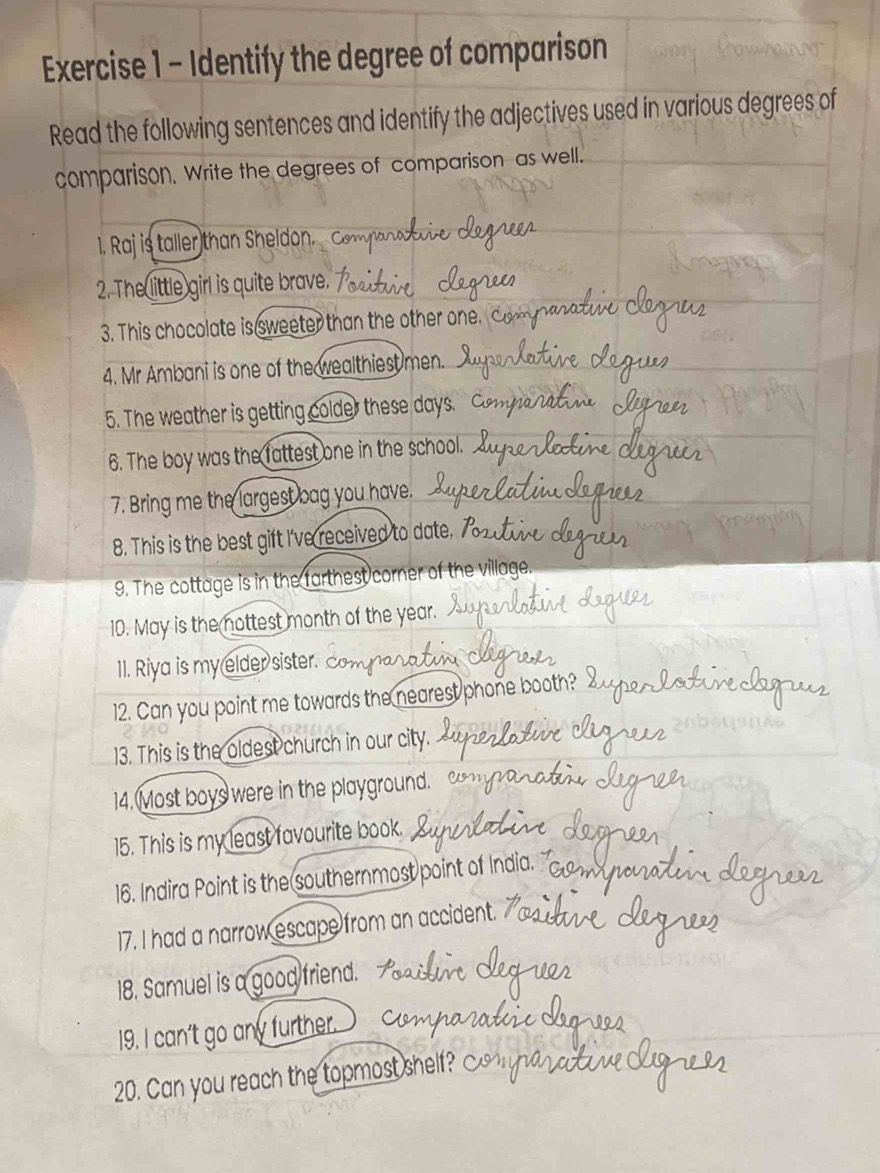 Exercise 1 - Identify the degree of comparison
Read the following sentences and identify the adjectives used in various degrees of
comparison. Write the degrees of comparison as well.
1. Raj is taller than Sheldon. comparative degrees
2. The little girl is quite brave. Positive degrees
3. This chocolate is sweeter than the other one. comparative degrees
4. Mr Ambani is one of the wealthiest men. Superlative degrees
5. The weather is getting colder these days. comparative degrees
6. The boy was the fattest one in the school. Superlative degrees
7. Bring me the largest bag you have. Superlative degrees
8. This is the best gift I've received to date. Positive degrees
9. The cottage is in the farthest corner of the village.
10. May is the hottest month of the year. Superlative degrees
11. Riya is my elder sister. comparative degrees
12. Can you point me towards the nearest phone booth? Superlative degrees
13. This is the oldest church in our city. Superlative degrees
14. Most boys were in the playground. comparative degrees
15. This is my least favourite book. Superlative degrees
16. Indira Point is the southernmost point of India. comparative degrees
17. I had a narrow escape from an accident. Positive degrees
18. Samuel is a good friend. Positive degrees
19. I can't go any further. comparative degrees
20. Can you reach the topmost shelf? comparative degrees